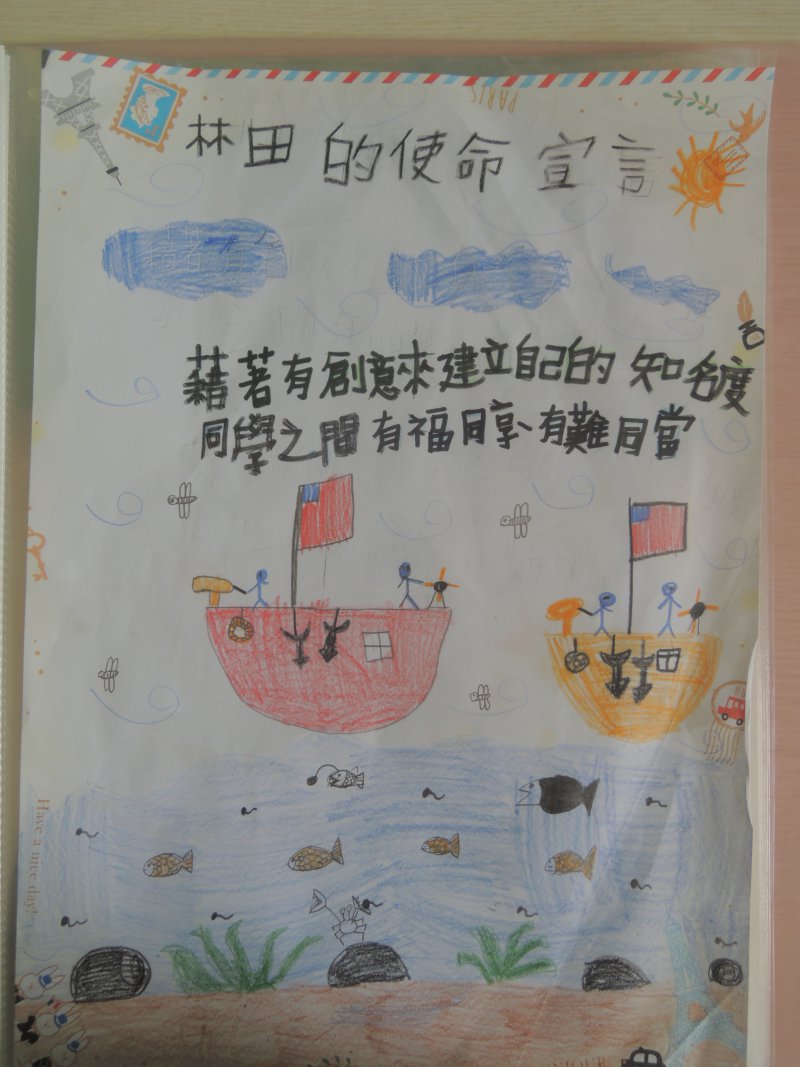 PARIS
林田 的使命宣言
藉著有創意來建立自己的知名度
同學之間有福同享、有難同當
Have a nice day!